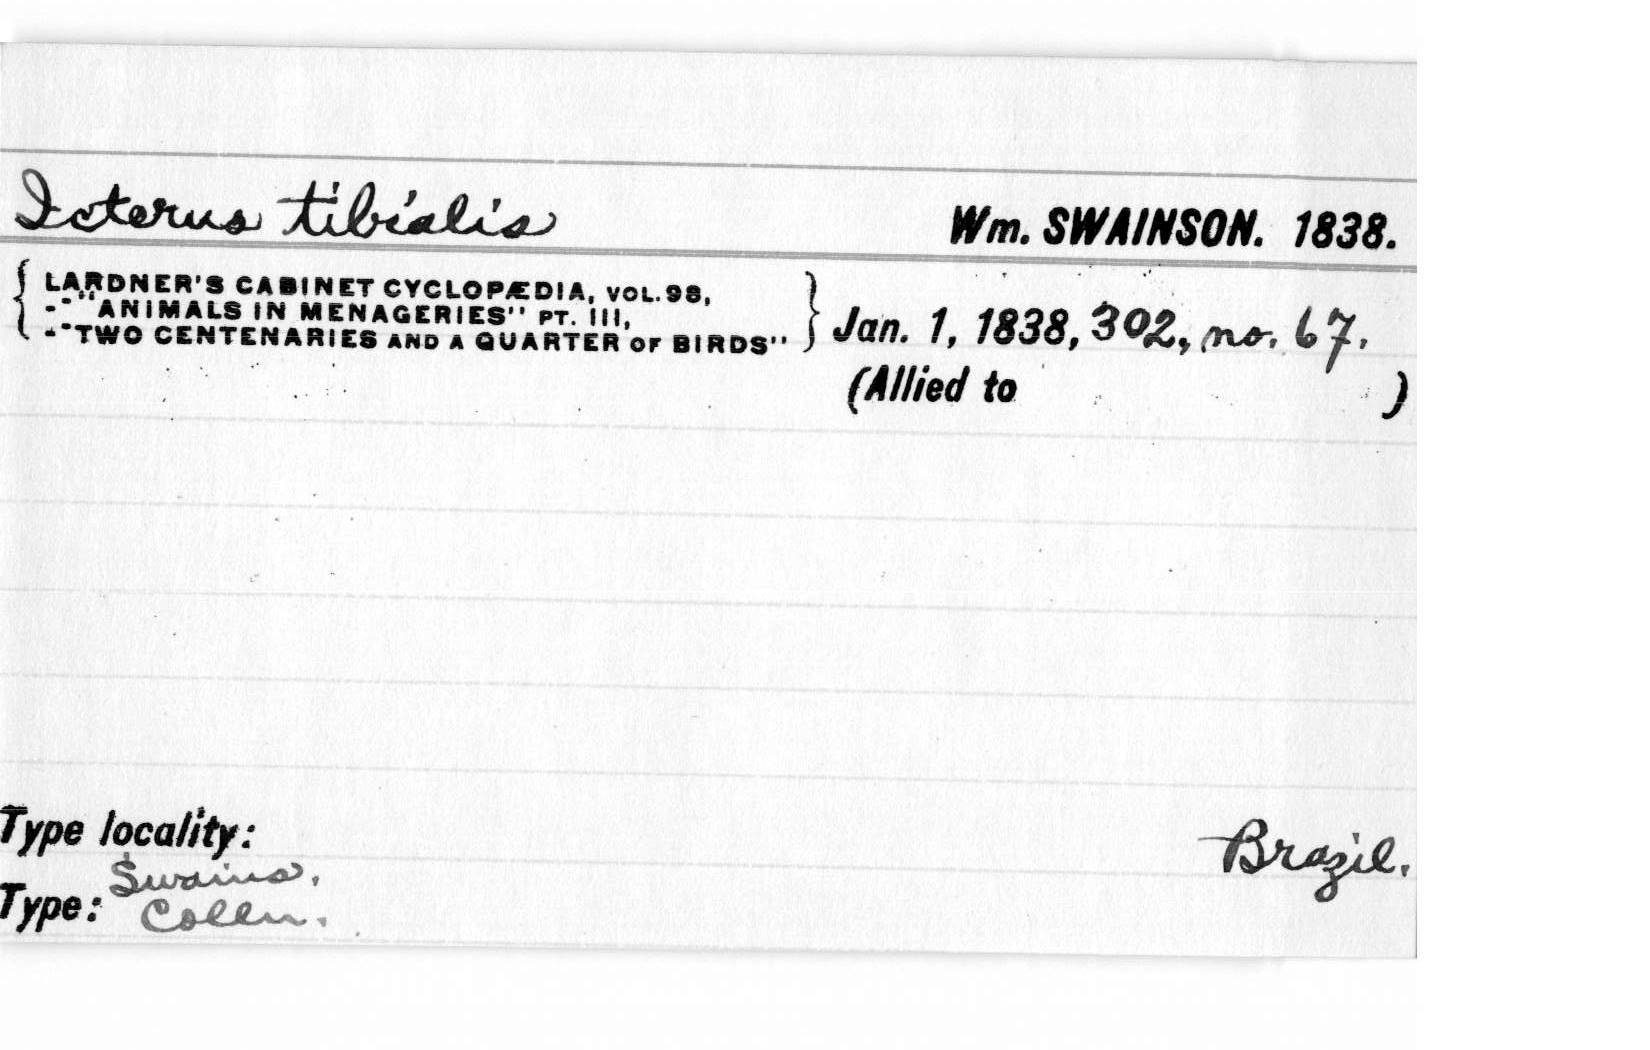 Icterus tibialis Wm. SWAINSON. 1838.
{ LARDNER'S CABINET CYCLOPÆDIA, VOL. 98, }
-"ANIMALS IN MENAGERIES" PT. III,
-"TWO CENTENARIES AND A QUARTER OF BIRDS" Jan. 1, 1838, 302, no. 67.
(Allied to )
Type locality: Brazil.
Swains.
Type: Colln.